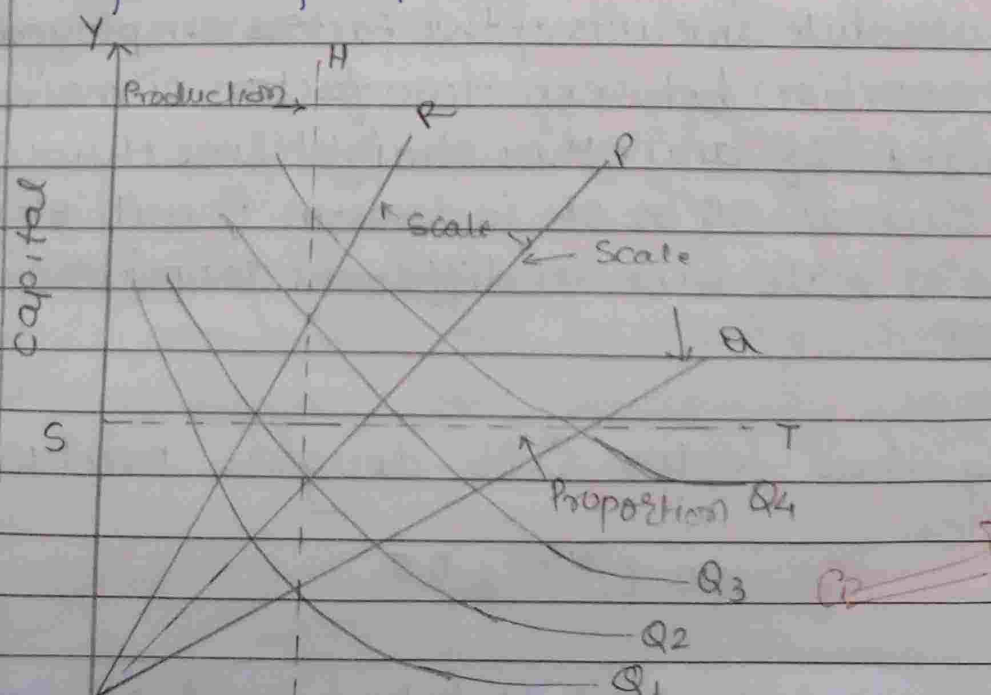 Y
H
Production
R
P
Scale
Scale
Capital
Q
S
T
Proportion
Q4
Q3
Q2
Q1